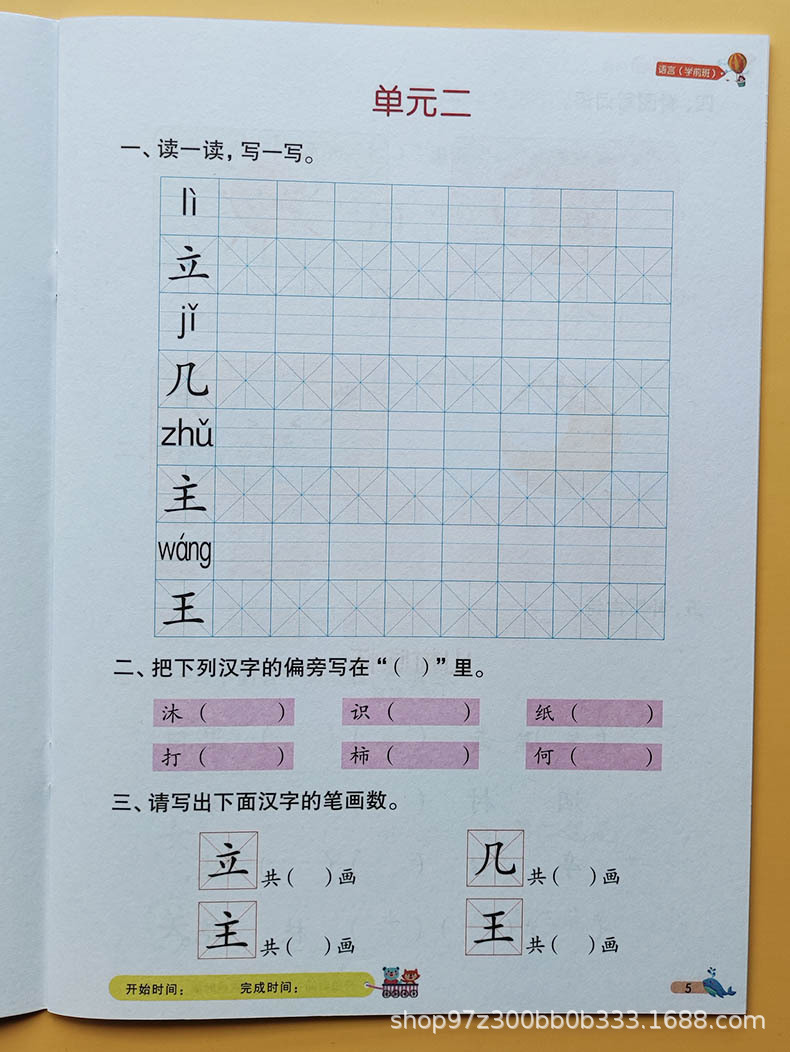 语言（学前班）
单元二
一、读一读，写一写。
lì
立
jǐ
几
zhǔ
主
wáng
王
二、把下列汉字的偏旁写在“（ ）”里。
沐（ ） 识（ ） 纸（ ）
打（ ） 柿（ ） 何（ ）
三、请写出下面汉字的笔画数。
立 共（ ）画 几 共（ ）画
主 共（ ）画 王 共（ ）画
开始时间： 完成时间：
5
shop97z300bb0b333.1688.com